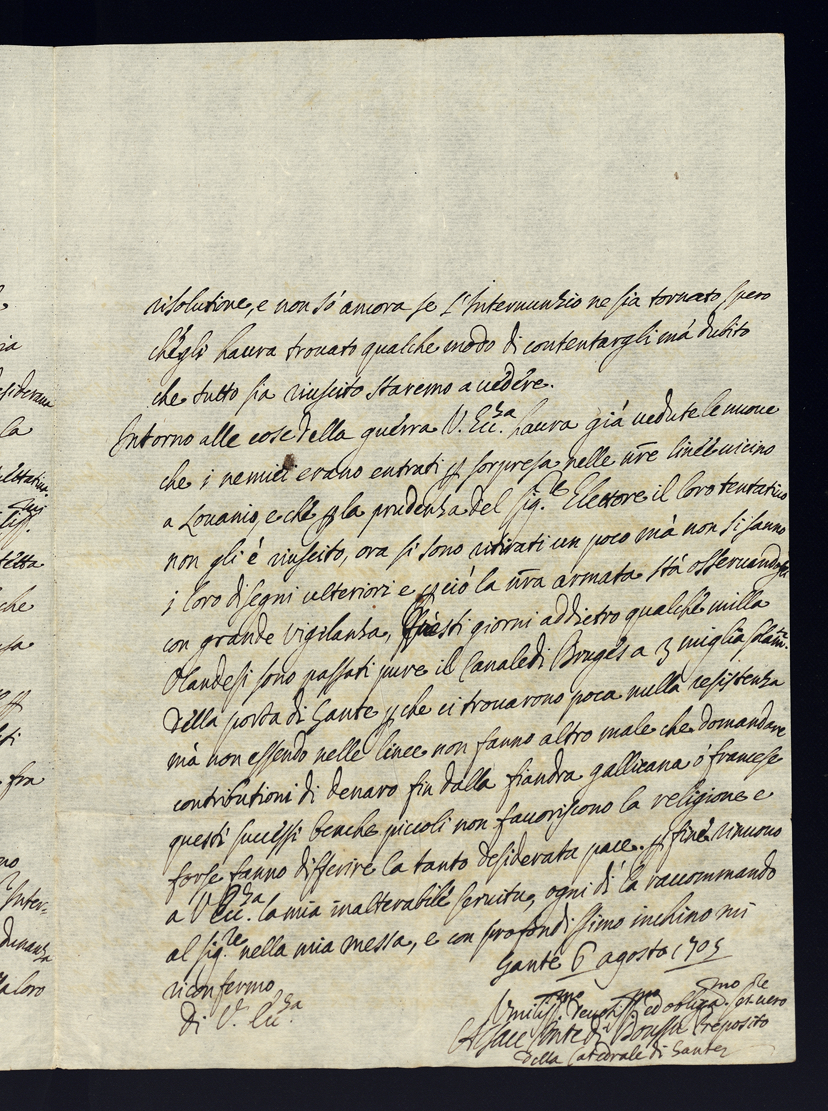 risolutione, e non sò ancora se l'Internunzio ne sia tornato, spero
ch'egli haura trouato qualche modo di contentargli mà dubito
che tutto sia riuscito staremo a uedere.
Intorno alle cose della guerra V. Ecc.za haura già uedute le nuoue
che i nemici erano entrati p sorpresa nelle nre linee uicino
a Louanio, e che p la prudenza del sig.re Elettore il loro tentatiuo
non gli è riuscito, ora si sono ritirati un poco mà non si sanno
i loro disegni ulteriori e p ciò la nra armata stà osseruandogli
con grande vigilanza, Questi giorni addietro qualche milla
Olandesi sono passati pure il Canale di Bruges a 3 miglia solam.te
della porta di Gante p che ci trouarono poca nulla resistenza
mà non essendo nelle linee non fanno altro male che domandare
contributioni di denaro fin dalla fiandra gallicana ò francese
questi successi benche piccoli non fauoriscono la religione e
forse fanno differire la tanto desiderata pace. p fine rinuouo
a V. Ecc.za la mia inalterabile seruitu, ogni dì la raccommando
al sig.re nella mia messa, e con profondissimo inchino mi
riconfermo
Gante 6 agosto 1705
di V. Ecc.za
Vmiliss.mo deuotiss.mo ed obligat.mo seruo
Alsace Conte di Boussu Preposito
della Catedrale di Gante